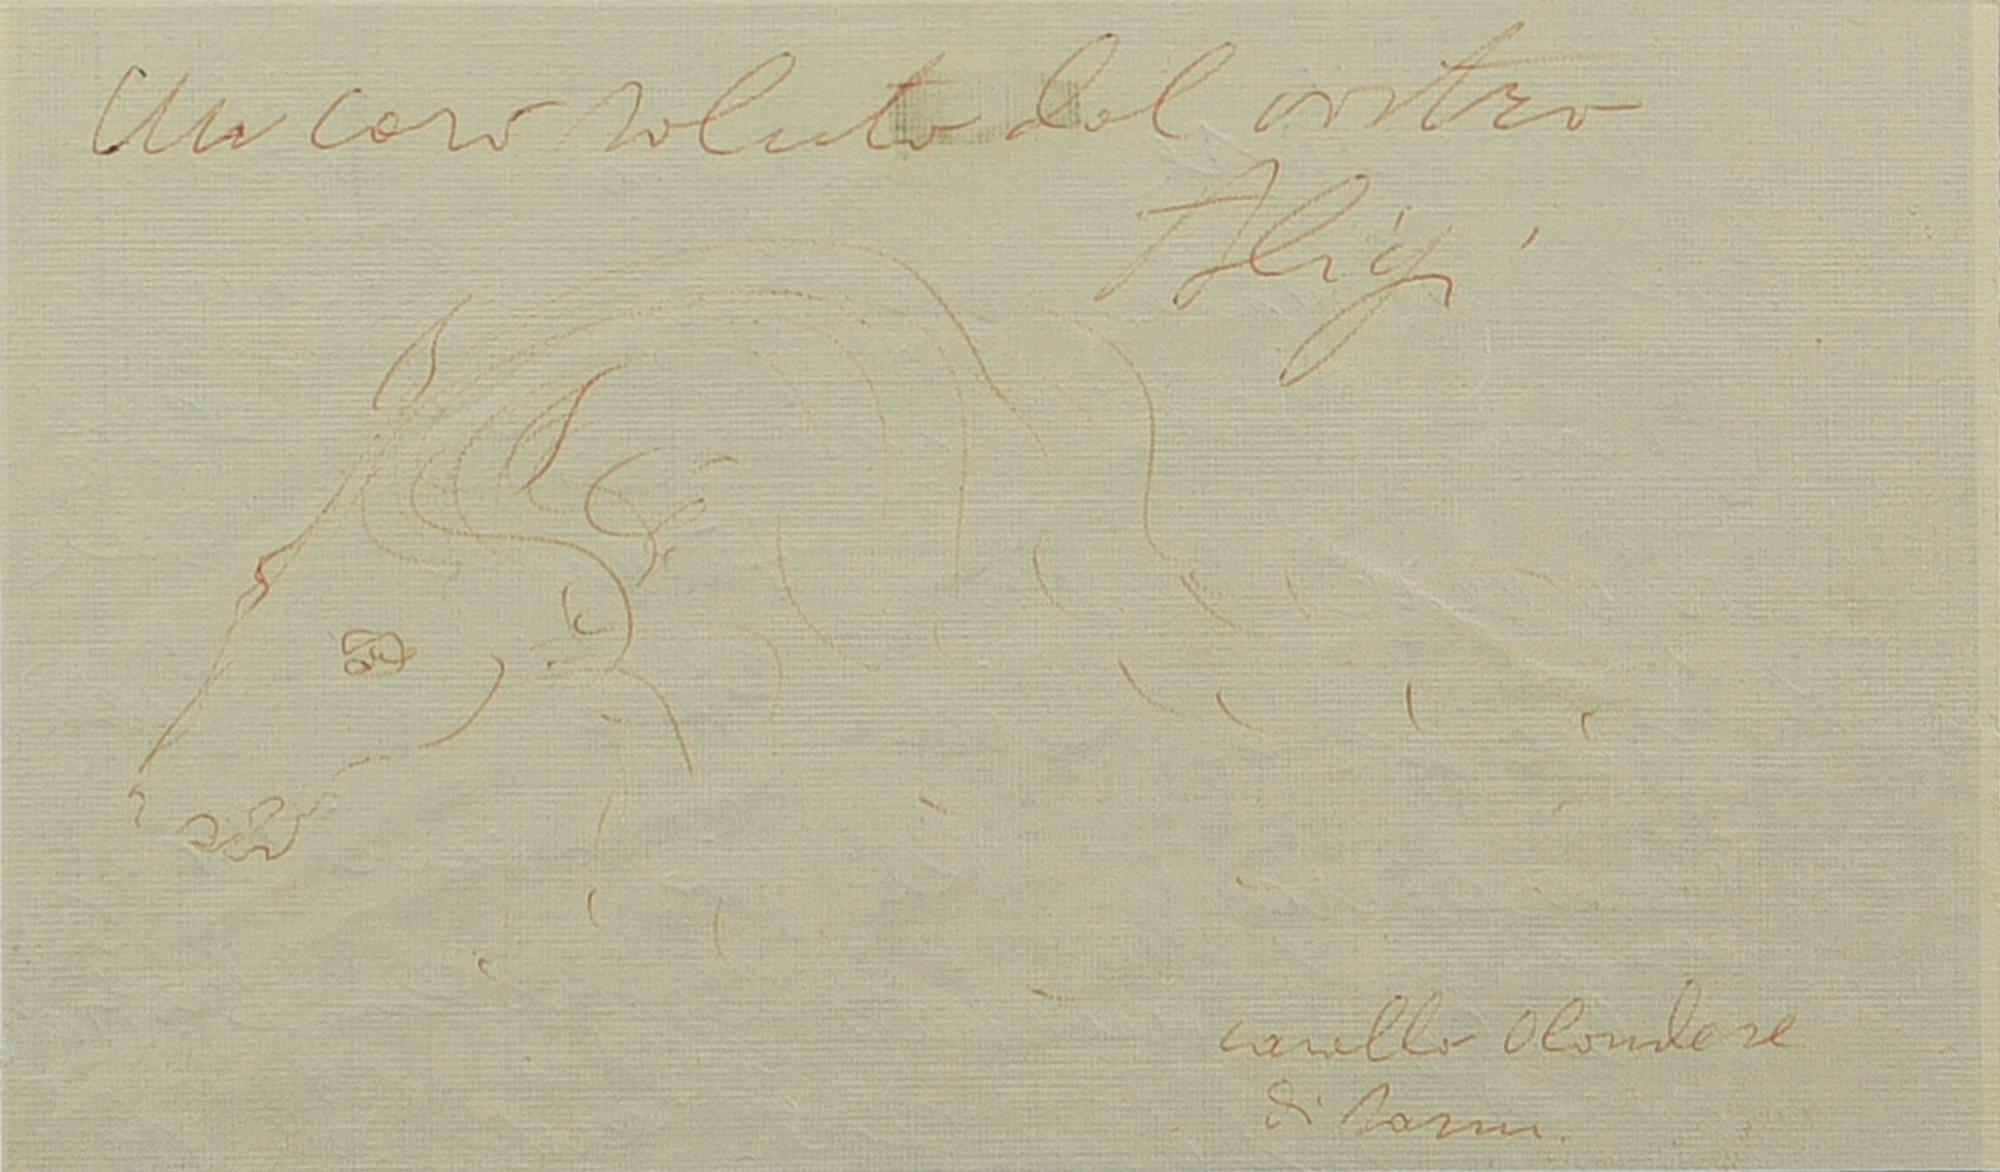 Un caro saluto dal vostro
Aligi
cavallo Olandese
di